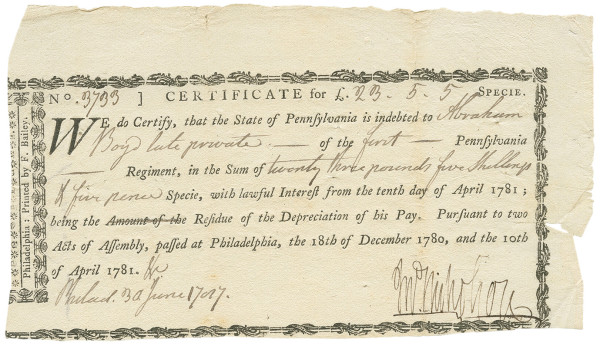 No. 3733 ] CERTIFICATE for £. 23. 5. 5 SPECIE.
WE do Certify, that the State of Pennsylvania is indebted to Abraham
Boyd late private — of the first — Pennsylvania
— Regiment, in the Sum of twenty three pounds five Shillings
& five pence Specie, with lawful Interest from the tenth day of April 1781;
being the Amount of the Residue of the Depreciation of his Pay. Pursuant to two
Acts of Assembly, passed at Philadelphia, the 18th of December 1780, and the 10th
of April 1781. &c
Philad. 30 June
Jno. Nicholson
Philadelphia: Printed by F. Bailey.